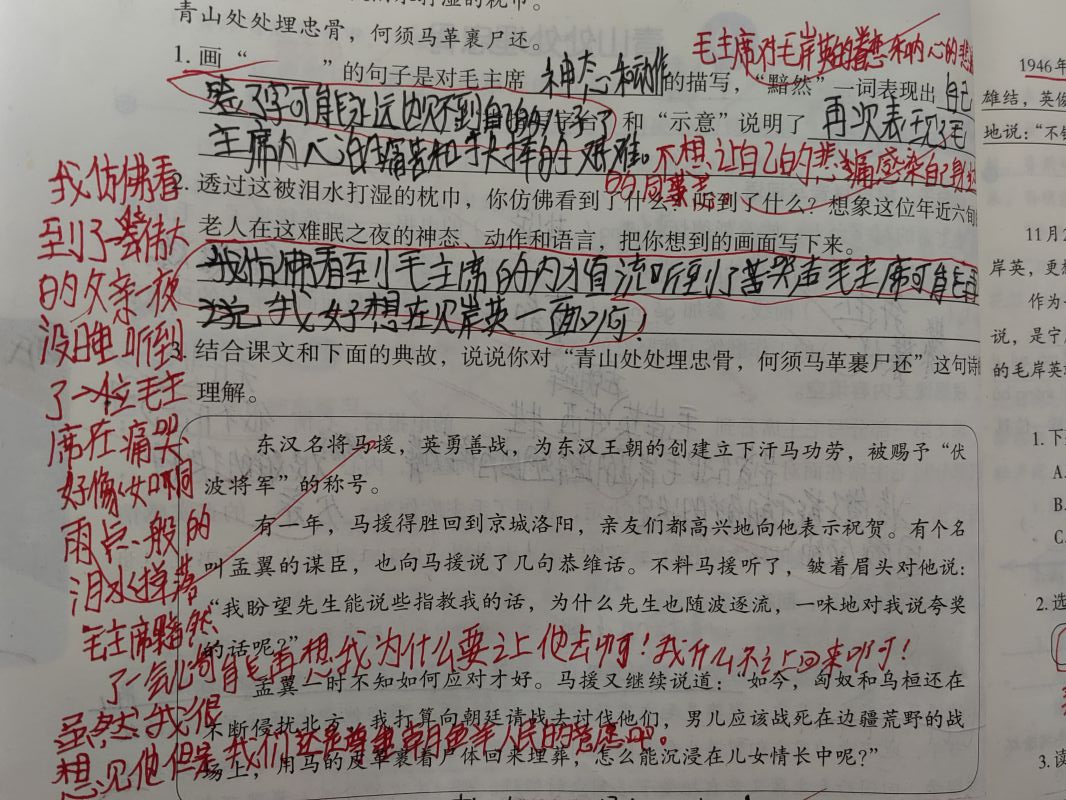 青山处处埋忠骨，何须马革裹尸还。
1. 画“______”的句子是对毛主席 神态和动作 的描写，“黯然”一词表现出
毛主席对毛岸英的眷恋和内心的悲
签了字可能永远也见不到自己的儿子了 和“示意”说明了 再次表现了毛
主席内心的痛苦和抉择的艰难。
不想让自己的悲痛感染自己身
的同事
2. 透过这被泪水打湿的枕巾，你仿佛看到了什么？听到了什么？想象这位年近六旬
老人在这难眠之夜的神态、动作和语言，把你想到的画面写下来。
我仿佛看到毛主席的 听到了苦哭声毛主席可能再
说我好想在 岸英一面啊！
3. 结合课文和下面的典故，说说你对“青山处处埋忠骨，何须马革裹尸还”这句诗
理解。
东汉名将马援，英勇善战，为东汉王朝的创建立下汗马功劳，被赐予“伏
波将军”的称号。
有一年，马援得胜回到京城洛阳，亲友们都高兴地向他表示祝贺。有个名
叫孟翼的谋臣，也向马援说了几句恭维话。不料马援听了，皱着眉头对他说：
“我盼望先生能说些指教我的话，为什么先生也随波逐流，一味地对我说夸奖
的话呢？”
孟翼一时不知如何应对才好。马援又继续说道：“如今，匈奴和乌桓还在
不断侵扰北方，我打算向朝廷请战去讨伐他们，男儿应该战死在边疆荒野的战
场上，用马的皮革裹着尸体回来埋葬，怎么能沉浸在儿女情长中呢？”
我仿佛看
到了 伟大
的父亲一夜
没睡听到
了一位毛主
席在痛哭
好像 如同
雨点一般的
泪水掉落
毛主席黯然
了一会心可能再想我为什么要让他去啊！我什么不让 回来啊！
虽然我很
想见他但是我们还是尊重朝鲜人民的意愿吧。
1946年
雄结，英俊
地说：“不
11月2
岸英，更想
作为一
说，是宁
的毛岸英
1. 下
A.
B.
C.
2. 选
3. 读